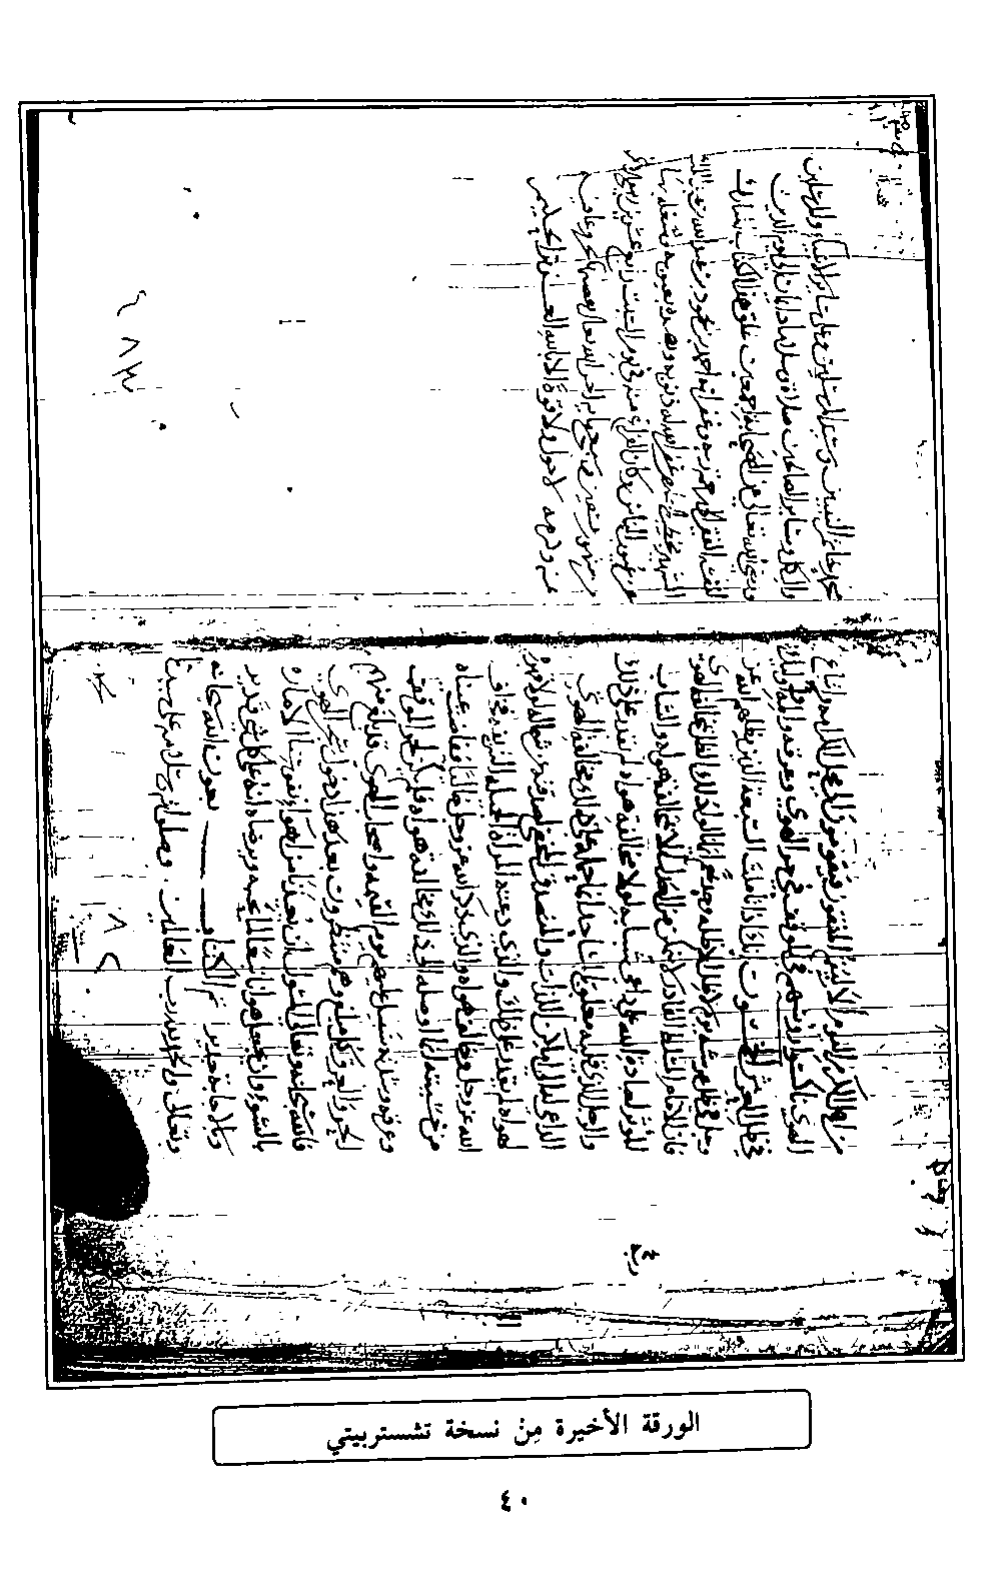 من أهل الكرم اليوم ألا ليقم المتقون فيقومون إلى محل الكرامة واتباع
الهوى ناكسوا رؤوسهم في الموقف في حر الهوى وعرقه وألمه وأولئك
في ظل العرش الخمسون أنك إذا تأملت السبعة الذين يظلهم الله عز
وجل في ظل عرشه يوم لا ظل إلا ظله وجدتهم إنما نالوا ذلك الظل بمخالفة الهوى
فإن الإمام المسلط القادر لا يتمكن من العدل إلا بمخالفة هواه والشاب
المؤثر لعبادة الله على داعي شبابه لولا مخالفة هواه لم يقدر على ذلك
والرجل الذي قلبه معلق بالمساجد إنما حمله على ذلك مخالفة الهوى
الداعي له إلى أماكن اللذات والمتصدق المخفي لصدقته عن شماله لولا قهره
لهواه لم يقدر على ذلك والذي دعته المرأة الجميلة الشريفة فخاف
الله عز وجل وخالف هواه والذي ذكر الله عز وجل خاليا ففاضت عيناه
من خشيته إنما أوصله إلى ذلك مخالفة هواه فلم يكن لحر الموقف
وعرقه وشدته سبيل عليهم يوم القيمة وأصحاب الهوى قد بلغ منهم
الحر والعرق كل مبلغ وهم ينتظرون بعد هذا دخول سجن الهوى
فالله سبحانه وتعالى المسؤول أن يعيذنا من أهواء نفوسنا الأمارة
بالسوء وأن يجعل هوانا تبعا لما يحبه ويرضاه إنه على كل شيء قدير
وبالإجابة جدير تم الكتاب بعون الله سبحانه
وتعالى والحمد لله رب العالمين وصلواته وسلامه على سيدنا
محمد خاتم النبيين وسيد المرسلين وعلى سائر الأنبياء والمرسلين
وآل كل وسائر الصالحين صلاة وسلاما دائمان إلى يوم الدين
ورضي الله تعالى عن الصحابة أجمعين علق هذا الكتاب المبارك
الفقير إلى رحمة ربه وغفرانه احمد بن محمود بن
الشهير غفر الله ذنوبه
وكان الفراغ منه في يوم السبت رابع
من شهور سنة
وكرمه لا حول ولا قوة إلا بالله العلي العظيم
الورقة الأخيرة مِنْ نسخة تشستربيتي
٤٠